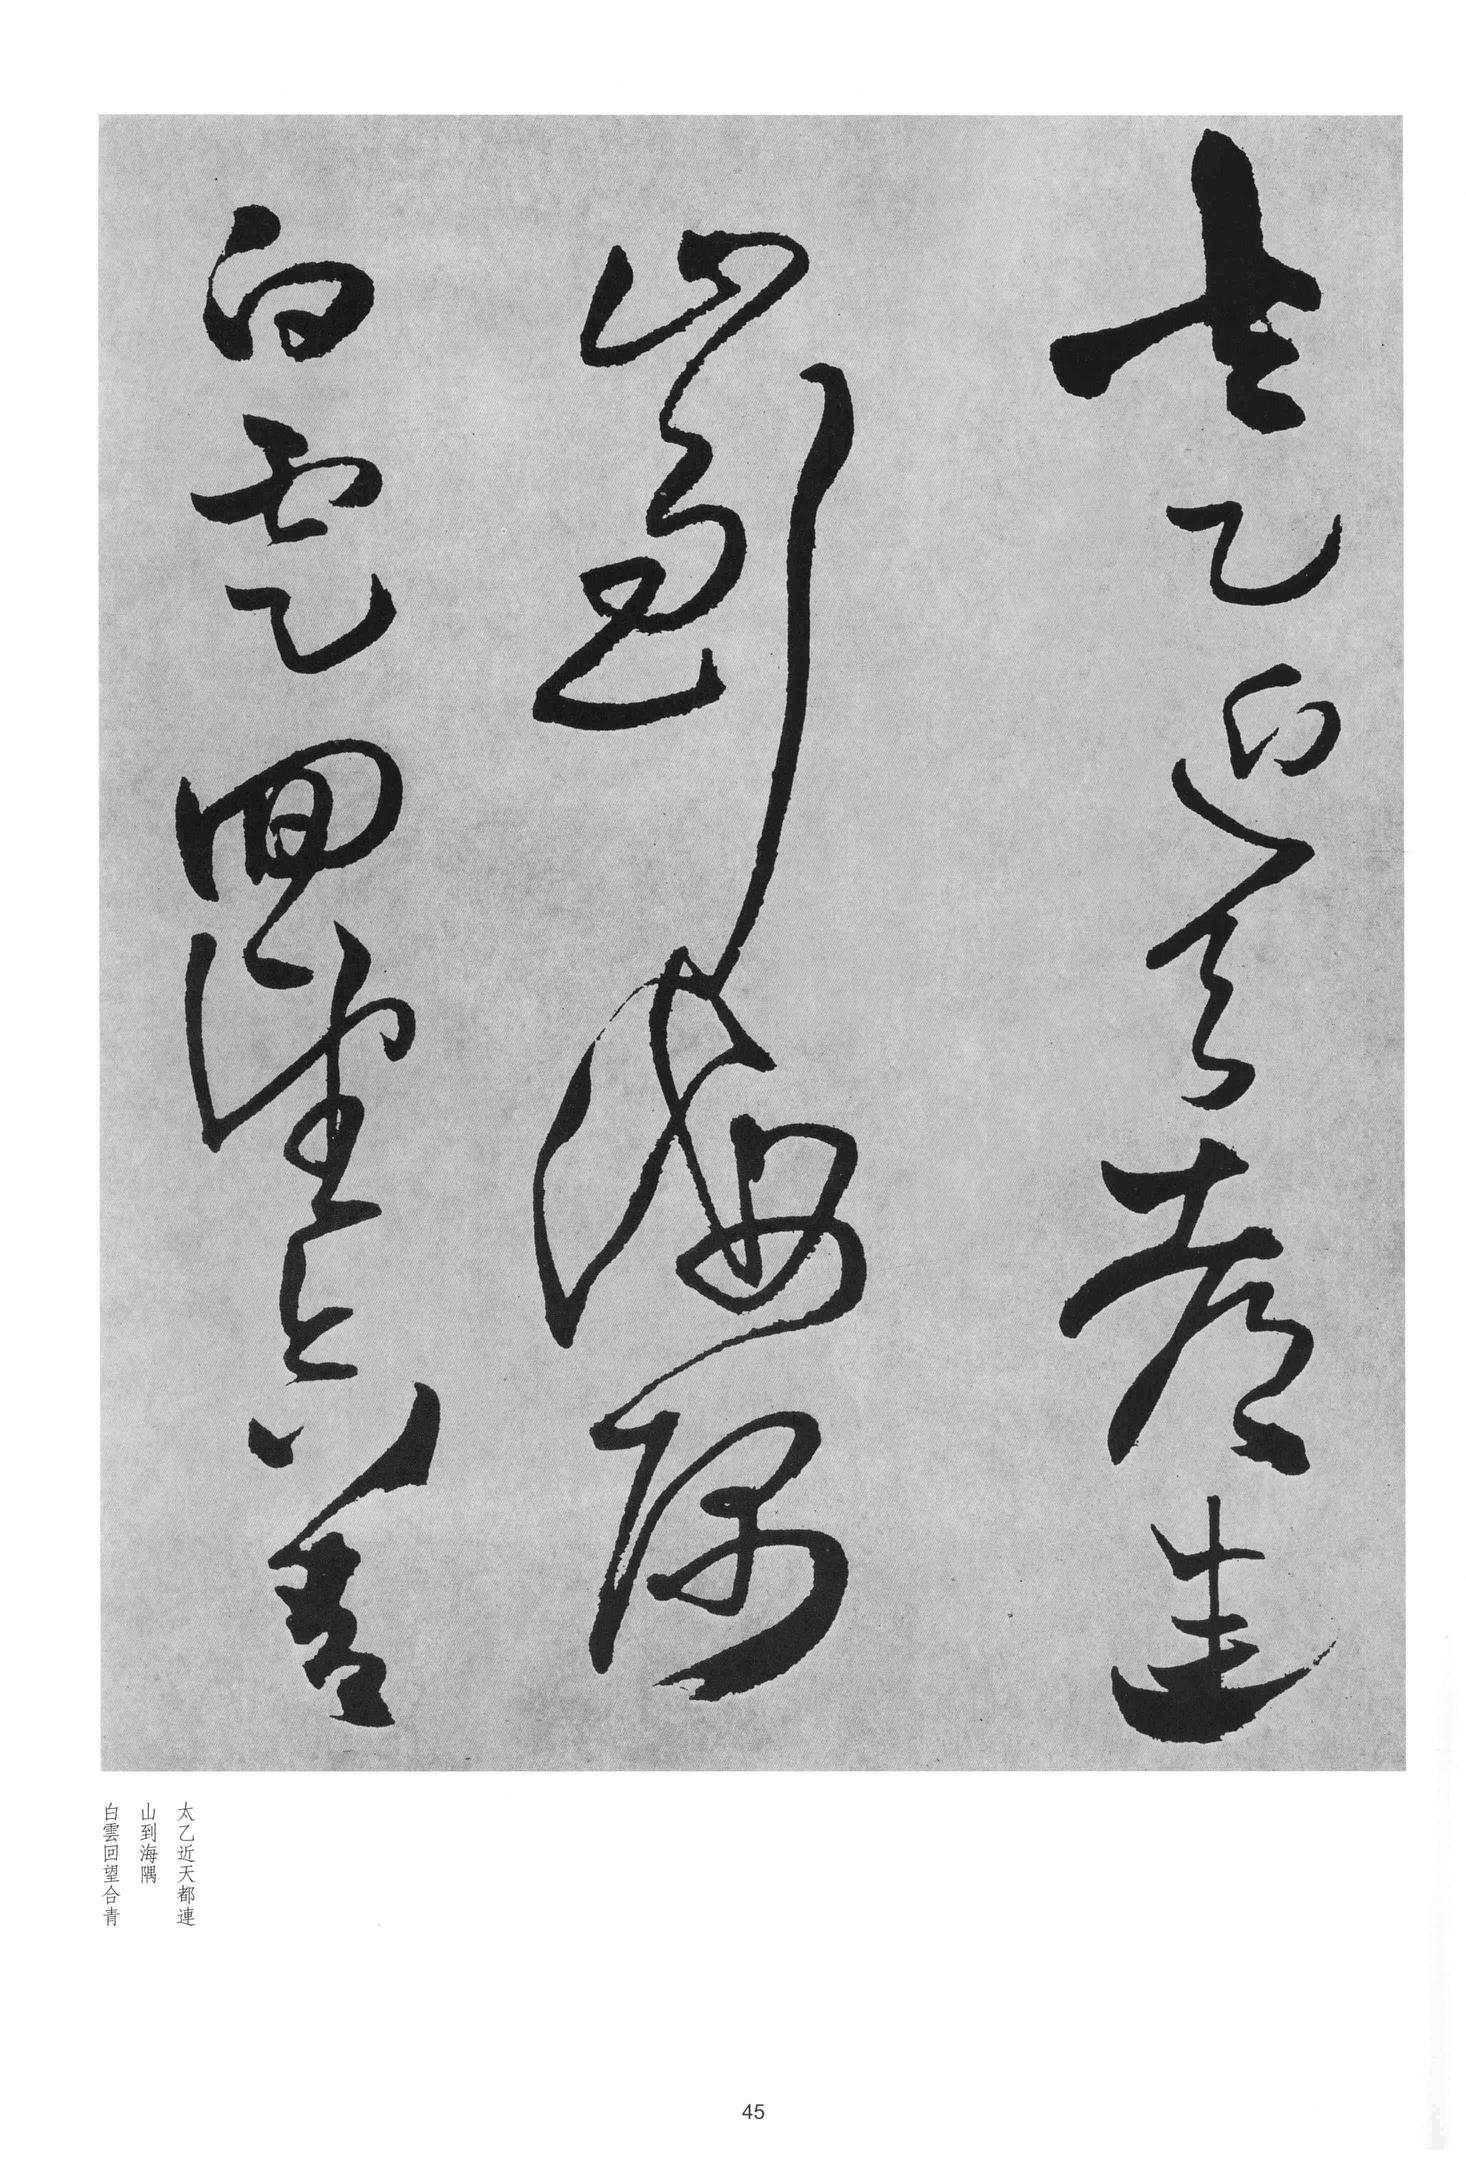 太乙近天都連
山到海隅
白雲回望合青
太乙近天都連
山到海隅
白雲回望合青
45